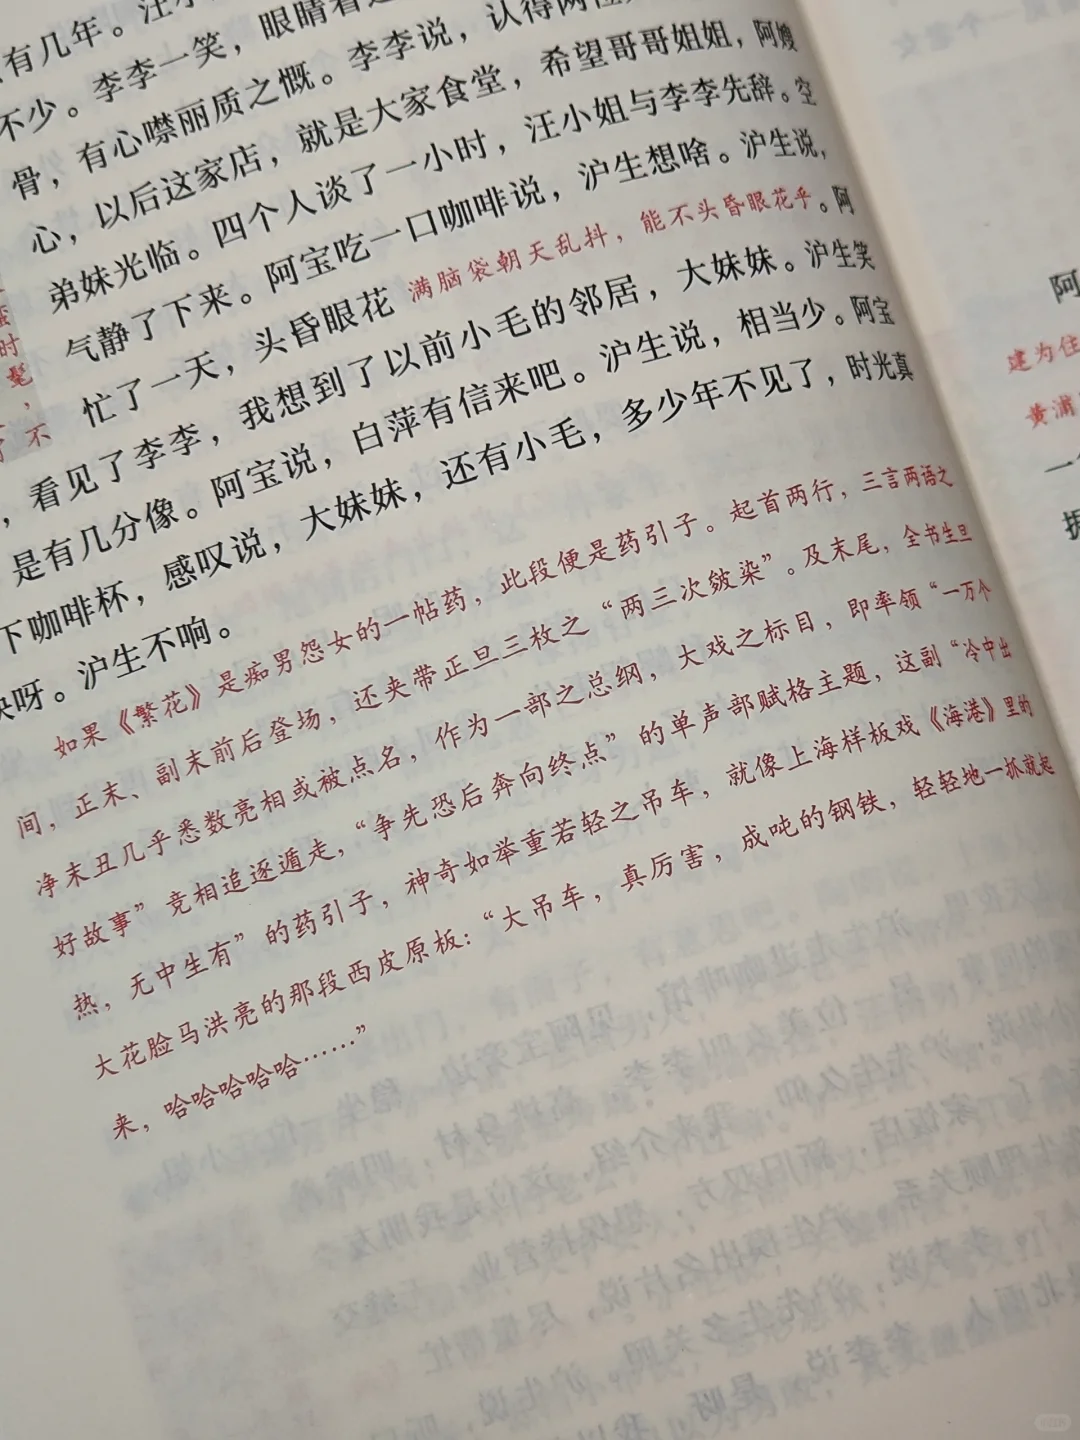 有几年。汪小
不少。李李一笑，眼睛看
骨，有心噤丽质之慨。李李说，认得两位，
心，以后这家店，就是大家食堂，希望哥哥姐姐，阿嫂
弟妹光临。四个人谈了一小时，汪小姐与李李先辞。空
气静了下来。阿宝吃一口咖啡说，沪生想啥。沪生说，
忙了一天，头昏眼花 满脑袋朝天乱抖，能不头昏眼花乎。阿
，看见了李李，我想到了以前小毛的邻居，大妹妹。沪生笑
是有几分像。阿宝说，白萍有信来吧。沪生说，相当少。阿宝
下咖啡杯，感叹说，大妹妹，还有小毛，多少年不见了，时光真
快呀。沪生不响。
如果《繁花》是痴男怨女的一帖药，此段便是药引子。起首两行，三言两语之
间，正末、副末前后登场，还夹带正旦三枚之“两三次皴染”。及末尾，全书生旦
净末丑几乎悉数亮相或被点名，作为一部之总纲，大戏之标目，即率领“一万个
好故事”竞相追逐遁走，“争先恐后奔向终点”的单声部赋格主题，这副“冷中出
热，无中生有”的药引子，神奇如举重若轻之吊车，就像上海样板戏《海港》里的
大花脸马洪亮的那段西皮原板：“大吊车，真厉害，成吨的钢铁，轻轻地一抓就起
来，哈哈哈哈哈……”
时髦，
不
阿
建为住
黄浦
一
振